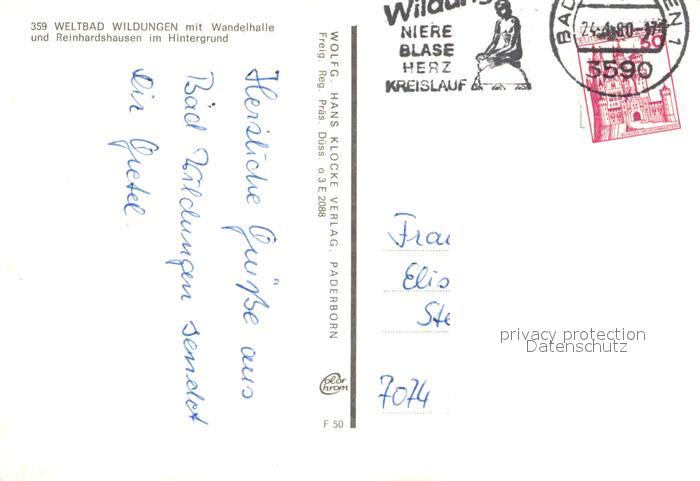 359 WELTBAD WILDUNGEN mit Wandelhalle
und Reinhardshausen im Hintergrund
Herzliche Grüße aus
Bad Wildungen sendet
Dir Gretel.
WOLFG. HANS KLOCKE VERLAG, PADERBORN
Freig. Reg. Präs. Düss. 03 E 2088
Color Chrom
F 50
Wildung
NIERE
BLASE
HERZ
KREISLAUF
BAD
EN 1
24.4.80
3590
50
Frau
Elis
Ste
7074
privacy protection
Datenschutz